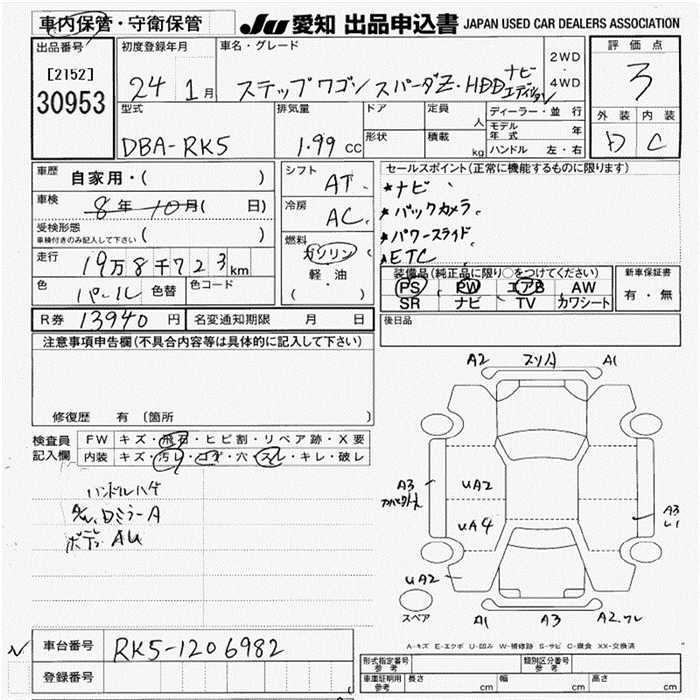 車内保管・守衛保管 JU 愛知 出品申込書 JAPAN USED CAR DEALERS ASSOCIATION
出品番号 初度登録年月 車名・グレード 2WD・4WD 評価点
[2152] 24 1月 ステップワゴン スパーダZ・HDDナビエディション 3
30953 型式 排気量 ドア 定員 人 ディーラー・並行 外装 内装
DBA-RK5 1.99 CC 形状 積載 kg モデル年式 年 D C
ハンドル 左・右
車歴 自家用・( ) シフト AT セールスポイント(正常に機能するものに限ります)
車検 8年10月( 日) 冷房 AC ★ナビ
受検形態 ( ) ★バックカメラ
車検付きのみ記入して下さい 燃料 ガソリン ★パワースライド
走行 19万8千723km 軽・油 ★ETC
色 パール 色替 色コード ( ・ ) 装備品(純正品に限り○をつけてください) 新車保証書
PS PW エアB AW 有・無
SR ナビ TV カワシート
R券 13940円 名変通知期限 月 日 後日品
注意事項申告欄(不具合内容等は具体的に記入して下さい)
修復歴 有 (箇所
検査員 FW キズ・飛石・ヒビ割・リペア跡・X要
記入欄 内装 キズ・汚レ・コゲ・穴・スレ・キレ・破レ
ハンドルハゲ
DミラーA
ボデー AU
A2 スリ A1
A3 UA2 A3
UA4
UA2
スペア A1 A3 A2
A-キズ E-エクボ U-凹み W-補修跡 S-サビ C-腐食 XX-交換済
車台番号 RK5-1206982
登録番号
形式指定番号 参考 類別区分番号 参考
車庫証明用 参考 長さ cm 幅 cm 高さ cm